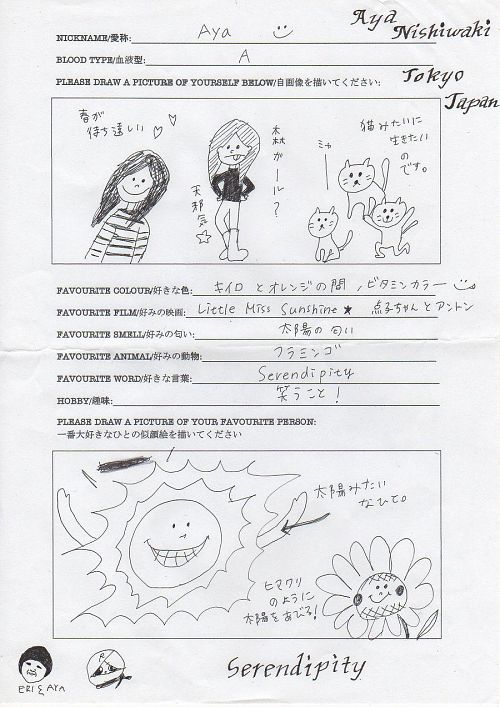 Aya
Nishiwaki
Tokyo
Japan
NICKNAME/愛称: Aya
BLOOD TYPE/血液型: A
PLEASE DRAW A PICTURE OF YOURSELF BELOW/自画像を描いてください:
春が
待ち遠しい
天邪気
森ガール?
ミャー
猫みたいに
生きたい
のです。
FAVOURITE COLOUR/好きな色: キイロとオレンジの間、ビタミンカラー
FAVOURITE FILM/好みの映画: Little Miss Sunshine ★ 点子ちゃんとアントン
FAVOURITE SMELL/好みの匂い: 太陽の匂い
FAVOURITE ANIMAL/好みの動物: フラミンゴ
FAVOURITE WORD/好きな言葉: Serendipity
HOBBY/趣味: 笑うこと!
PLEASE DRAW A PICTURE OF YOUR FAVOURITE PERSON:
一番大好きなひとの似顔絵を描いてください
太陽みたい
なひと。
ヒマワリ
のように
太陽をあびる!
ERI & AYA
Serendipity